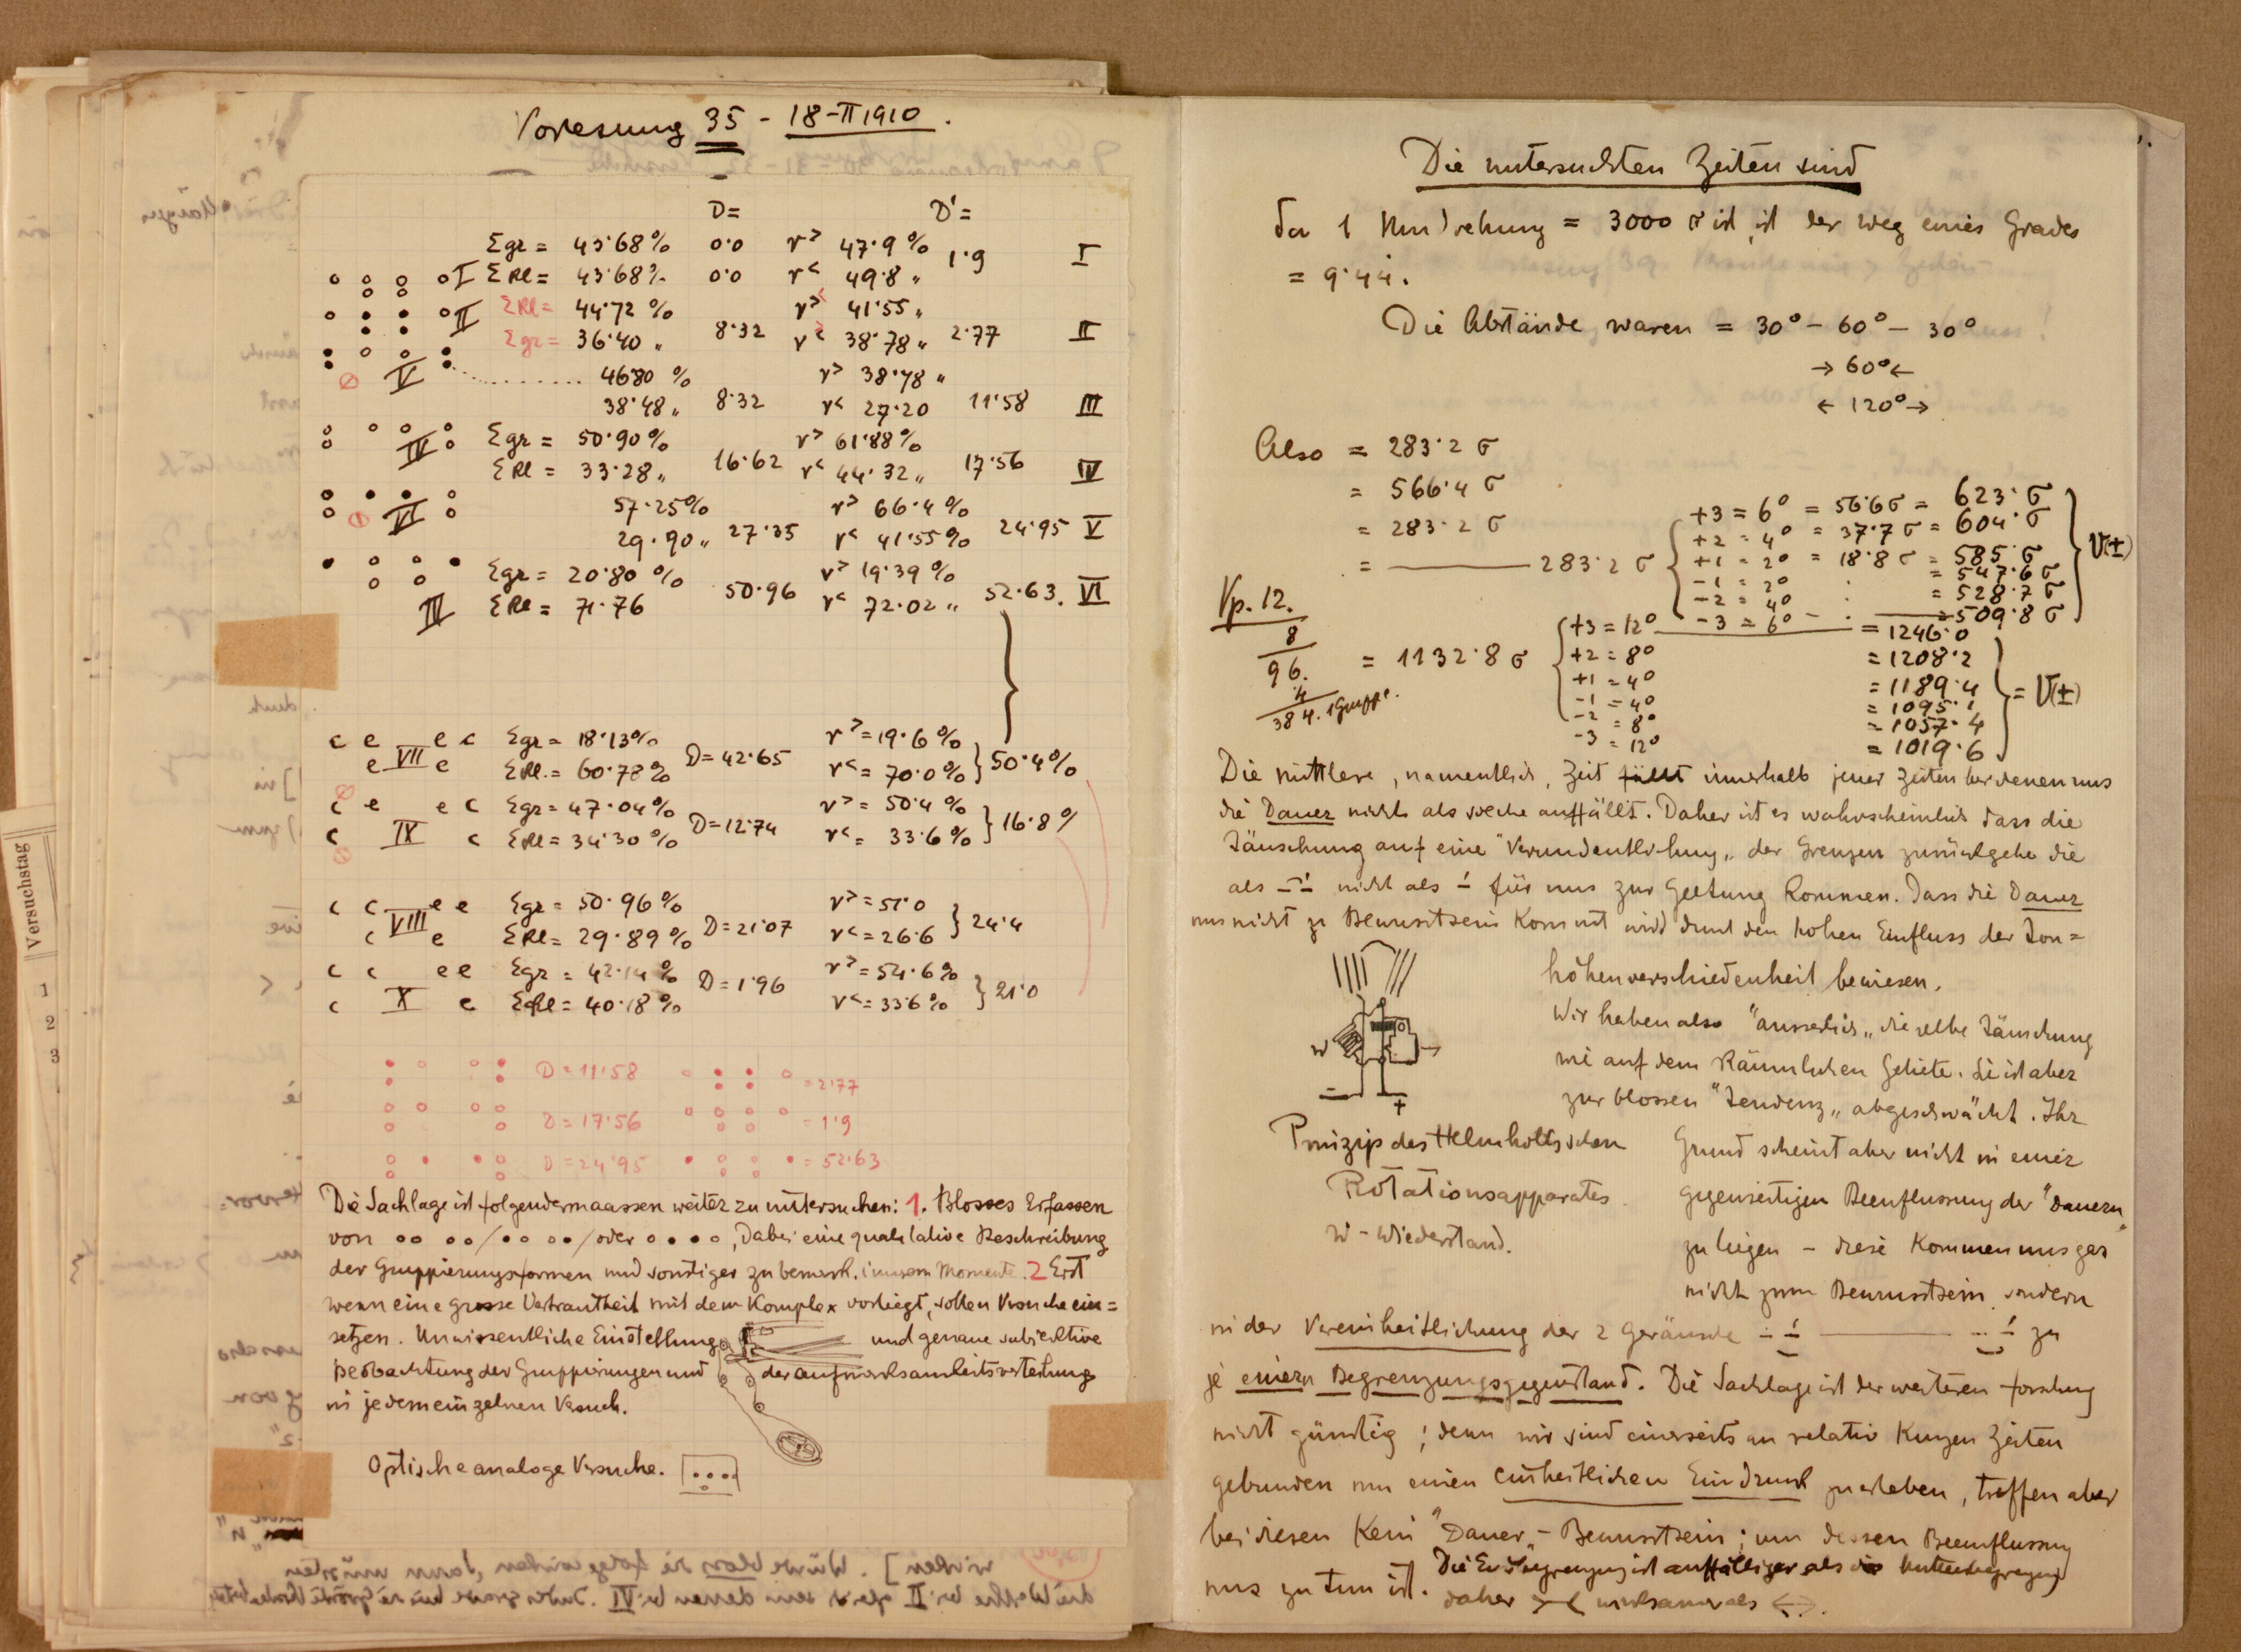 Vorlesung 35 - 18-II 1910.
D= D'=
Σgr = 43·68% 0·0 r> 47·9 % 1·9 I
I ΣKl = 43·68% 0·0 r< 49·8 „
II ΣKl = 44·72 % r> 41·55 „
Σgr = 36·40 „ 8·32 r< 38·78 „ 2·77 II
V 46·80 % r> 38·78 „
38·48 „ 8·32 r< 27·20 11·58 III
IV Σgr = 50·90 % r> 61·88 %
ΣKl = 33·28 „ 16·62 r< 44·32 „ 17·56 IV
VI 57·25% r> 66·4 %
29·90 „ 27·35 r< 41·55% 24·95 V
Σgr = 20·80 % r> 19·39 %
III ΣKl = 71·76 50·96 r< 72·02 „ 52·63. VI
c e VII e c Σgr = 18·13% D=42·65 r> = 19·6 % } 50·4%
e e ΣKl. = 60·78% r< = 70·0%
c e e c Σgr = 47·04% D=12·74 r> = 50·4 % } 16·8 %
c IX c ΣKl = 34·30 % r< = 33·6 %
c c VIII e e Σgr = 50·96 % D=21·07 r> = 51·0 } 24·4
c e ΣKl = 29·89 % r< = 26·6
c c e e Σgr = 42·14 % D=1·96 r> = 54·6 % } 21·0
c X c ΣKl = 40·18 % r< = 33·6 %
D = 11·58 = 2·77
D = 17·56 = 1·9
D = 24·95 = 52·63
Die Sachlage ist folgendermaassen weiter zu untersuchen: 1. Blosses Erfassen
von •• •• / •• •• / oder • • • •, dabei eine qualitative Beschreibung
der Gruppierungsformen und sonstiger zu bemerk. Momente. 2 Erst
wenn eine grosse Vertrautheit mit dem Komplex vorliegt, sollen Versuche ein=
setzen. Unwissentliche Einstellung und genaue subjektive
Beobachtung der Gruppierungen und der Aufmerksamkeitsverteilung
in jedem einzelnen Versuch.
Optische analoge Versuche.
Versuchstag
1
2
3
Die untersuchten Zeiten sind
Da 1 Umdrehung = 3000 σ ist, ist der Weg eines Grades
= 9·44.
Die Abstände waren = 30° - 60° - 30°
→ 60° ←
← 120° →
Also = 283·2 σ
= 566·4 σ
= 283·2 σ
= 283·2 σ
+3 = 6° = 56·6 σ = 623· σ
+2 = 4° = 37·7 σ = 604· σ
+1 = 2° = 18·8 σ = 585· σ
-1 = 2° = 547·6 σ
-2 = 4° = 528·7 σ
-3 = 6° = 509·8 σ
V(±)
Vp. 12.
8
96.
4
384. 1 Gruppe.
= 1132·8 σ
+3 = 12° = 1246·0
+2 = 8° = 1208·2
+1 = 4° = 1189·4
-1 = 4° = 1095·1
-2 = 8° = 1057·4
-3 = 12° = 1019·6
= V(±)
Die mittlere, namentlich, Zeit fällt innerhalb jener Zeiten bei denen uns
die Dauer nicht als solche auffällt. Daher ist es wahrscheinlich dass die
Täuschung auf eine "Verundeutlichung„ der Grenzen zurückgehe die
als nicht als für uns zur Geltung kommen. Dass die Dauer
uns nicht z. Bewusstsein kommt wird durch den hohen Einfluss der Ton=
höhenverschiedenheit bewiesen.
Wir haben also "äusserlich„ dieselbe Täuschung
wie auf dem Räumlichen Gebiete. Sie ist aber
zur blossen "Tendenz„ abgeschwächt. Ihr
Grund scheint aber nicht in einer
gegenseitigen Beeinflussung der "Dauern„
zu liegen - diese kommen uns gar
nicht zum Bewusstsein sondern
W
- +
Prinzip des Helmholtzschen
Rotationsapparates.
W - Wiederstand.
in der Vereinheitlichung der 2 Geräusche zu
je einem Begrenzungsgegenstand. Die Sachlage ist der weiteren Forschung
nicht günstig; denn wir sind einerseits an relativ kurzen Zeiten
gebunden um einen einheitlichen Eindruck zu erleben, treffen aber
bei diesen kein "Dauer„ - Bewusstsein; um dessen Beeinflussung
uns zu tun ist. Die Endbegrenzung ist auffälliger als die
daher >-< wirksamer als <->.